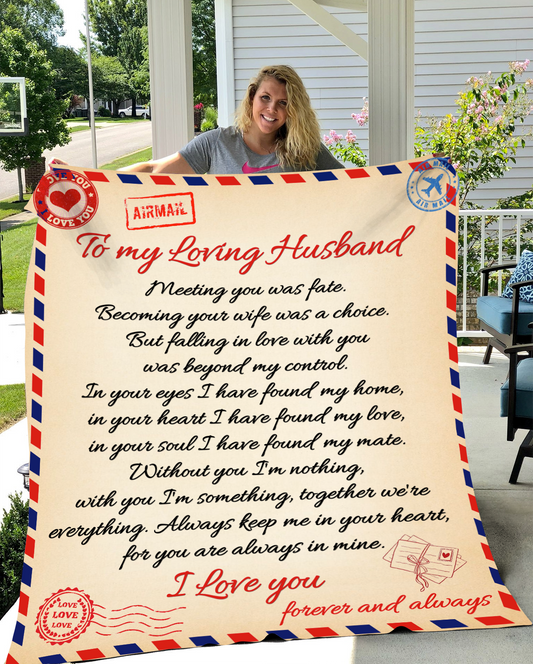 LOVE YOU
AIRMAIL
AIR MAIL
To my Loving Husband
Meeting you was fate.
Becoming your wife was a choice.
But falling in love with you
was beyond my control.
In your eyes I have found my home,
in your heart I have found my love,
in your soul I have found my mate.
Without you I'm nothing,
with you I'm something, together we're
everything. Always keep me in your heart,
for you are always in mine.
I Love you
forever and always
LOVE
LOVE LOVE
LOVE